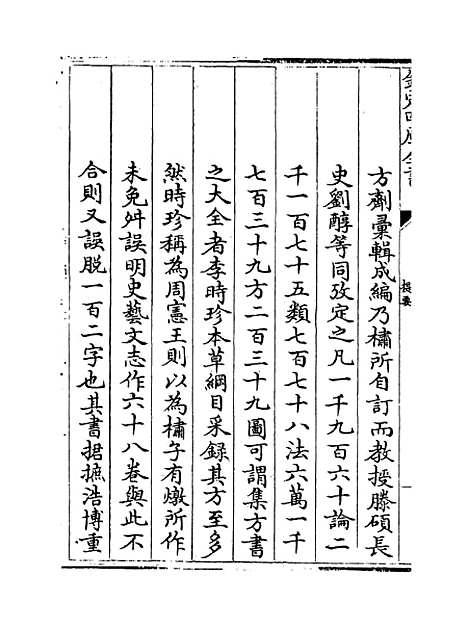 欽定四庫全書
提要
方劑彙輯成編乃橚所自訂而教授滕碩長
史劉醇等同攷定之凡一千九百六十論二
千一百七十五類七百七十八法六萬一千
七百三十九方二百三十九圖可謂集方書
之大全者李時珍本草綱目采録其方至多
然時珍稱為周憲王則以為橚子有燉所作
未免舛誤明史藝文志作六十八卷與此不
合則又誤脱一百二字也其書捃摭浩博重